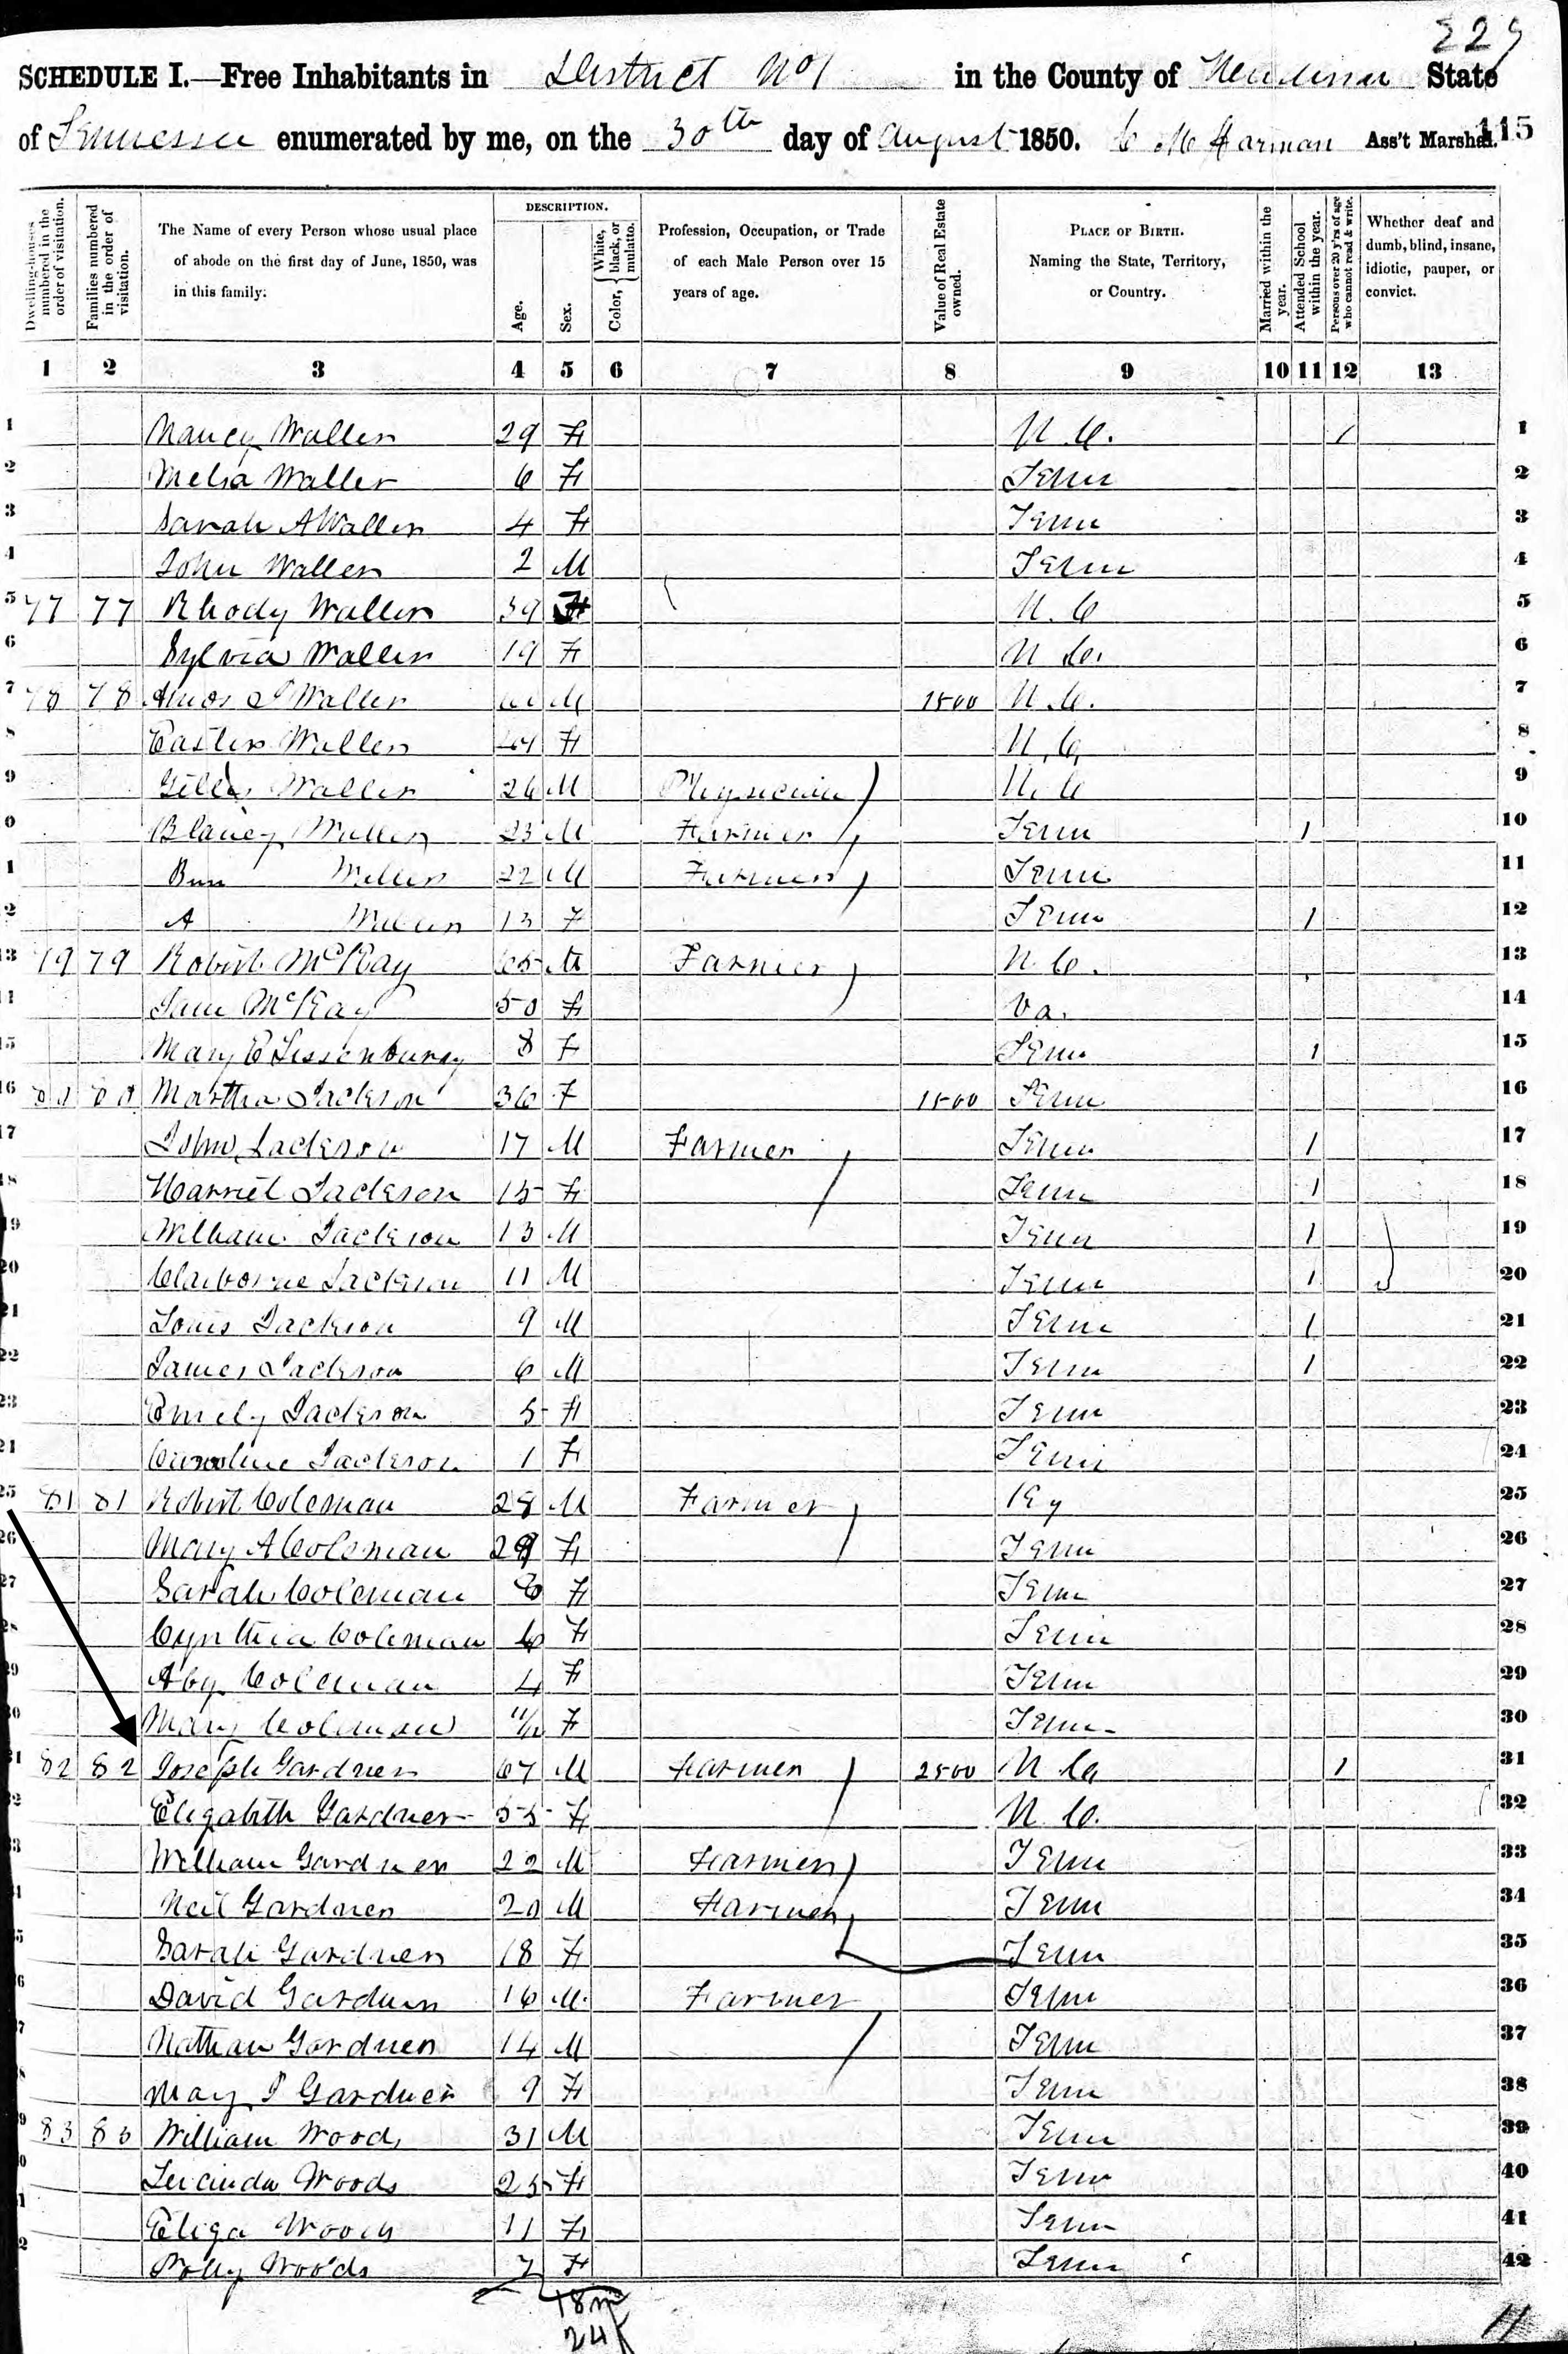 229
SCHEDULE I.—Free Inhabitants in District No 1 in the County of Henderson State
of Tennessee enumerated by me, on the 30th day of August 1850. C M Harman Ass't Marshal. 115
Dwelling-houses numbered in the order of visitation.
Families numbered in the order of visitation.
The Name of every Person whose usual place of abode on the first day of June, 1850, was in this family.
DESCRIPTION.
Age.
Sex.
Color, { White, black, or mulatto.
Profession, Occupation, or Trade of each Male Person over 15 years of age.
Value of Real Estate owned.
PLACE OF BIRTH. Naming the State, Territory, or Country.
Married within the year.
Attended School within the year.
Persons over 20 y'rs of age who cannot read & write.
Whether deaf and dumb, blind, insane, idiotic, pauper, or convict.
1 2 3 4 5 6 7 8 9 10 11 12 13
1 Nancy Waller 29 F N C. / 1
2 Melia Waller 6 F Tenn 2
3 Sarah A Waller 4 F Tenn 3
4 John Waller 2 M Tenn 4
5 77 77 Rhody Waller 39 F N. C 5
6 Sylvia Waller 19 F N C. 6
7 78 78 Amos Waller M 1500 N. C. 7
8 Waller F N. C, 8
9 Waller 26 M Physician N. C 9
0 Blaney Waller 23 M Farmer Tenn 1 10
1 Waller 22 M Farmer Tenn 11
2 A Waller 13 F Tenn 1 12
13 79 79 Robert McKay 65 M Farmer N C. 13
14 Jane McKay 50 F Va. 14
15 Mary E 8 F Tenn 1 15
16 80 80 Martha Jackson 36 F 1500 Tenn 16
17 John Jackson 17 M Farmer Tenn 1 17
18 Harriet Jackson 15 F Tenn 1 18
19 William Jackson 13 M Tenn 1 19
20 Claiborne Jackson 11 M Tenn 1 20
21 Louis Jackson 9 M Tenn 1 21
22 James Jackson 6 M Tenn 1 22
23 Emily Jackson 5 F Tenn 23
24 Caroline Jackson 1 F Tenn 24
25 81 81 Robert Coleman 28 M Farmer Ky 25
26 Mary A Coleman 29 F Tenn 26
27 Sarah Coleman 8 F Tenn 27
28 Cynthia Coleman 6 F Tenn 28
29 Aby Coleman 4 F Tenn 29
30 Mary Coleman 11/12 F Tenn 30
31 82 82 Joseph Gardner 67 M Farmer 2500 N Ca 1 31
32 Elizabeth Gardner 55 F N. C. 32
33 William Gardner 22 M Farmer Tenn 33
34 Neil Gardner 20 M Farmer Tenn 34
35 Sarah Gardner 18 F Tenn 35
36 David Gardner 16 M. Farmer Tenn 36
37 Nathan Gardner 14 M Tenn 37
38 Mary J Gardner 9 F Tenn 38
39 83 83 William Woods 31 M Tenn 39
40 Lucinda Woods 25 F Tenn 40
41 Eliza Woods 11 F Tenn 41
42 Polly Woods 7 F Tenn 42
18 m
24 f
11